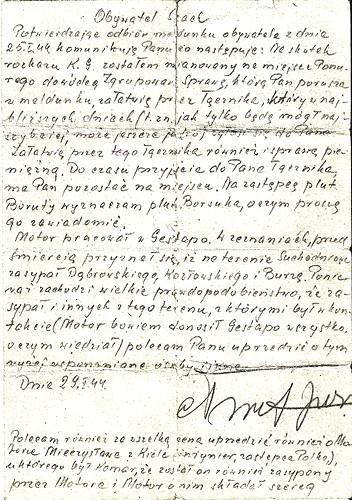 Obywatel Grach
Potwierdzając odbiór meldunku obywatela z dnia
25.I.44 komunikuję Panu co następuje: Na skutek
rozkazu K.G. zostałem mianowany na miejsce Ponu-
rego dowódcą Zgrupowań. Sprawę, którą Pan porusza
w meldunku, załatwię przez Łącznika, który w naj-
bliższych dniach (t.zn. jak tylko będę mógł naj-
szybciej, może jeszcze przed) zgłosi się do Pana.
Załatwię przez tego Łącznika również i sprawę pie-
niężną. Do czasu przyjścia do Pana Łącznika,
ma Pan pozostać na miejscu. Na zastępcę plut.
Boruty wyznaczam plut. Borsuka, o czym proszę
go zawiadomić.
Motor pracował w Gestapo. W zeznaniach, przed
śmiercią przyznał się, że na terenie Suchedniowa
zasypał Dąbrowskiego, Kozłowskiego i Burzę. Ponie-
waż zachodzi wielkie prawdopodobieństwo, że za-
sypał i innych z tego terenu, z którymi był w kon-
takcie (Motor bowiem donosił Gestapo wszystko
o czym wiedział) polecam Panu uprzedzić o tym
wyżej wspomniane osoby i inne.
Dnia 29.I.44
Polecam również za wszelką cenę uprzedzić również o Mo-
torze Mieczysława z Kielc (inżynier, zastępca Polka),
u którego był Komar, że został on również zasypany
przez Motora i Motor o nim składał szereg